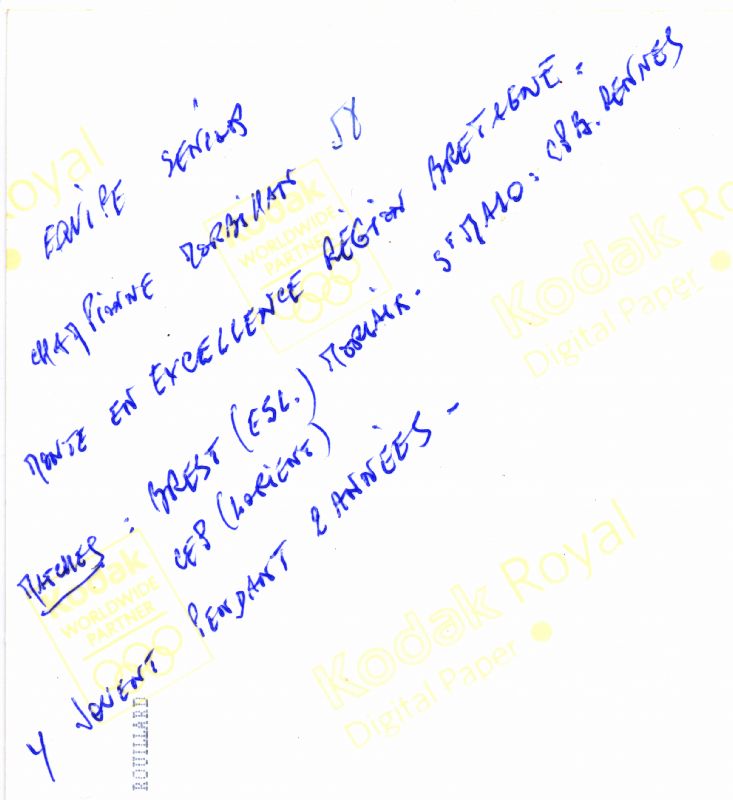 EQUIPE SENIOR 58
CHAMPIONNE MORBIHAN
MONTE EN EXCELLENCE RÉGION BRETAGNE.
MATCHES : BREST (ESL.) MORLAIX. St MALO. CPB. RENNES
CEP (LORIENT)
Y JOUENT PENDANT 2 ANNÉES -
ROUILLARD
Kodak Royal
Digital Paper
Kodak
WORLDWIDE
PARTNER
Kodak
WORLDWIDE
PARTNER
Kodak Royal
Digital Paper
Royal